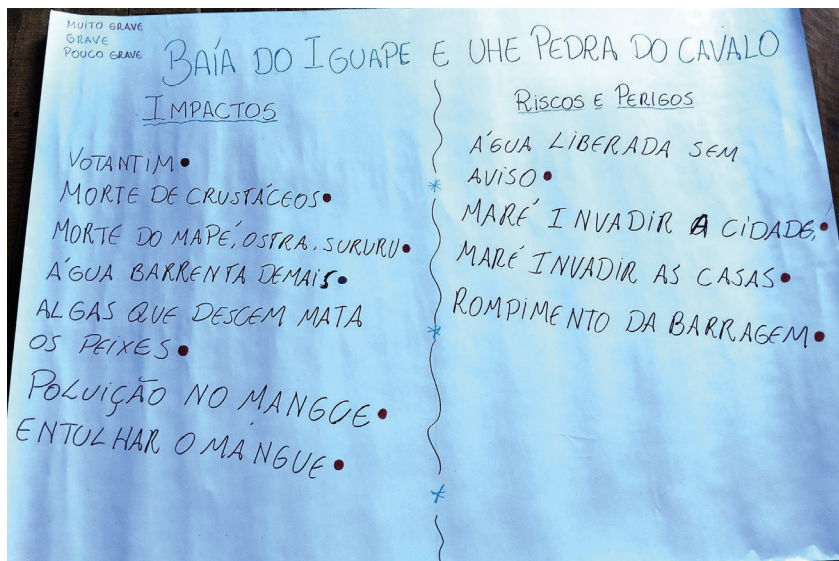 MUITO GRAVE
GRAVE
POUCO GRAVE
BAÍA DO IGUAPE E UHE PEDRA DO CAVALO
IMPACTOS
VOTANTIM
MORTE DE CRUSTÁCEOS
MORTE DO MAPÉ, OSTRA, SURURU
ÁGUA BARRENTA DEMAIS
ALGAS QUE DESCEM MATA
OS PEIXES
POLUIÇÃO NO MANGUE
ENTULHAR O MANGUE
RISCOS E PERIGOS
ÁGUA LIBERADA SEM
AVISO
MARÉ INVADIR A CIDADE,
MARÉ INVADIR AS CASAS
ROMPIMENTO DA BARRAGEM